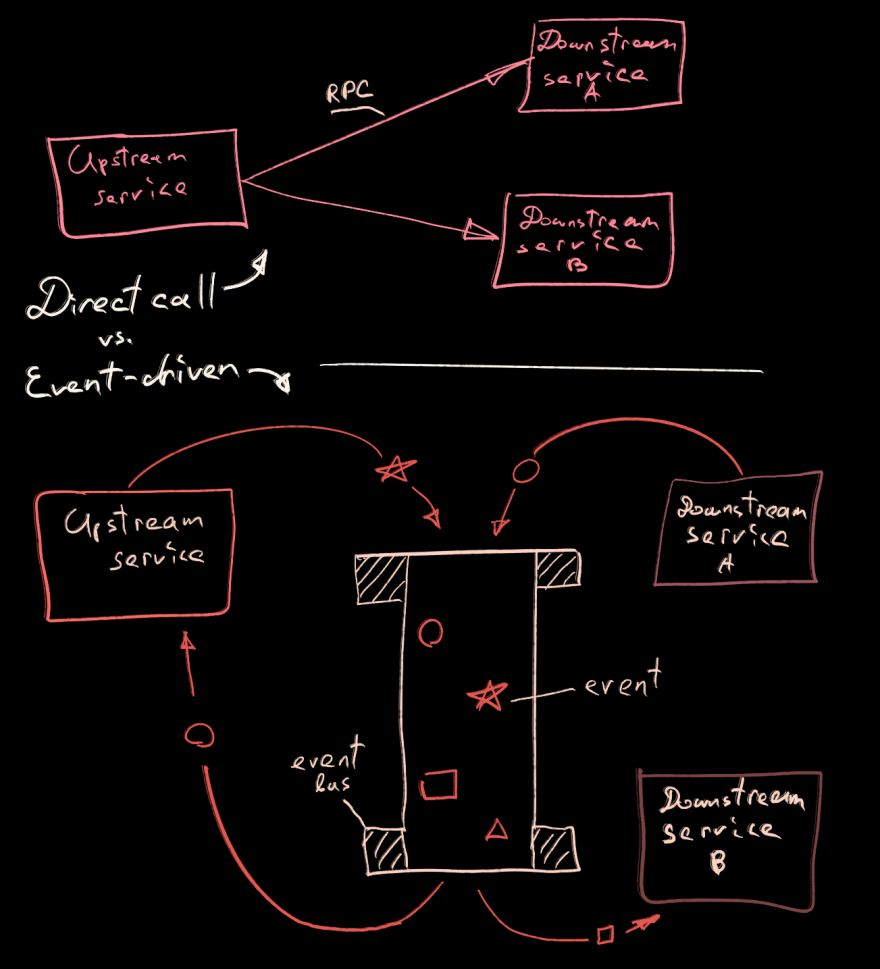 Downstream
service
A
RPC
Upstream
service
Downstream
service
B
Direct call
vs.
Event-driven
Upstream
service
Downstream
service
A
event
event
bus
Downstream
service
B